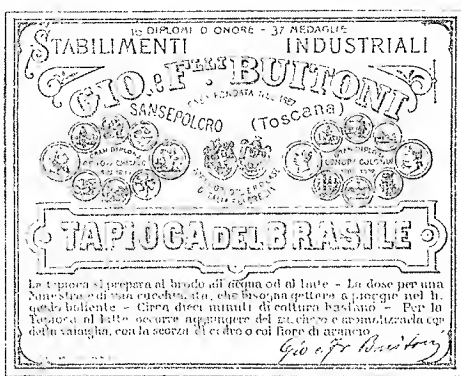 16 DIPLOMI D'ONORE - 37 MEDAGLIE
STABILIMENTI INDUSTRIALI
GIO. e F.LLI BUITONI
CASA FONDATA NEL 1827
SANSEPOLCRO (Toscana)
GRAN DIPLOMA
GRAN DIPLOMA
TAPIOCA DEL BRASILE
La tapioca si prepara al brodo all'acqua od al latte - La dose per una
minestra è di una cucchiaiata, che bisogna gettare a pioggia nel li-
quido bollente - Circa dieci minuti di cottura bastano - Per la
Tapioca al latte occorre aggiungere del zucchero e aromatizzarla con
della vainiglia, con la scorza di cedro o coi fiore di arancio.
Gio e Fr. Buitoni